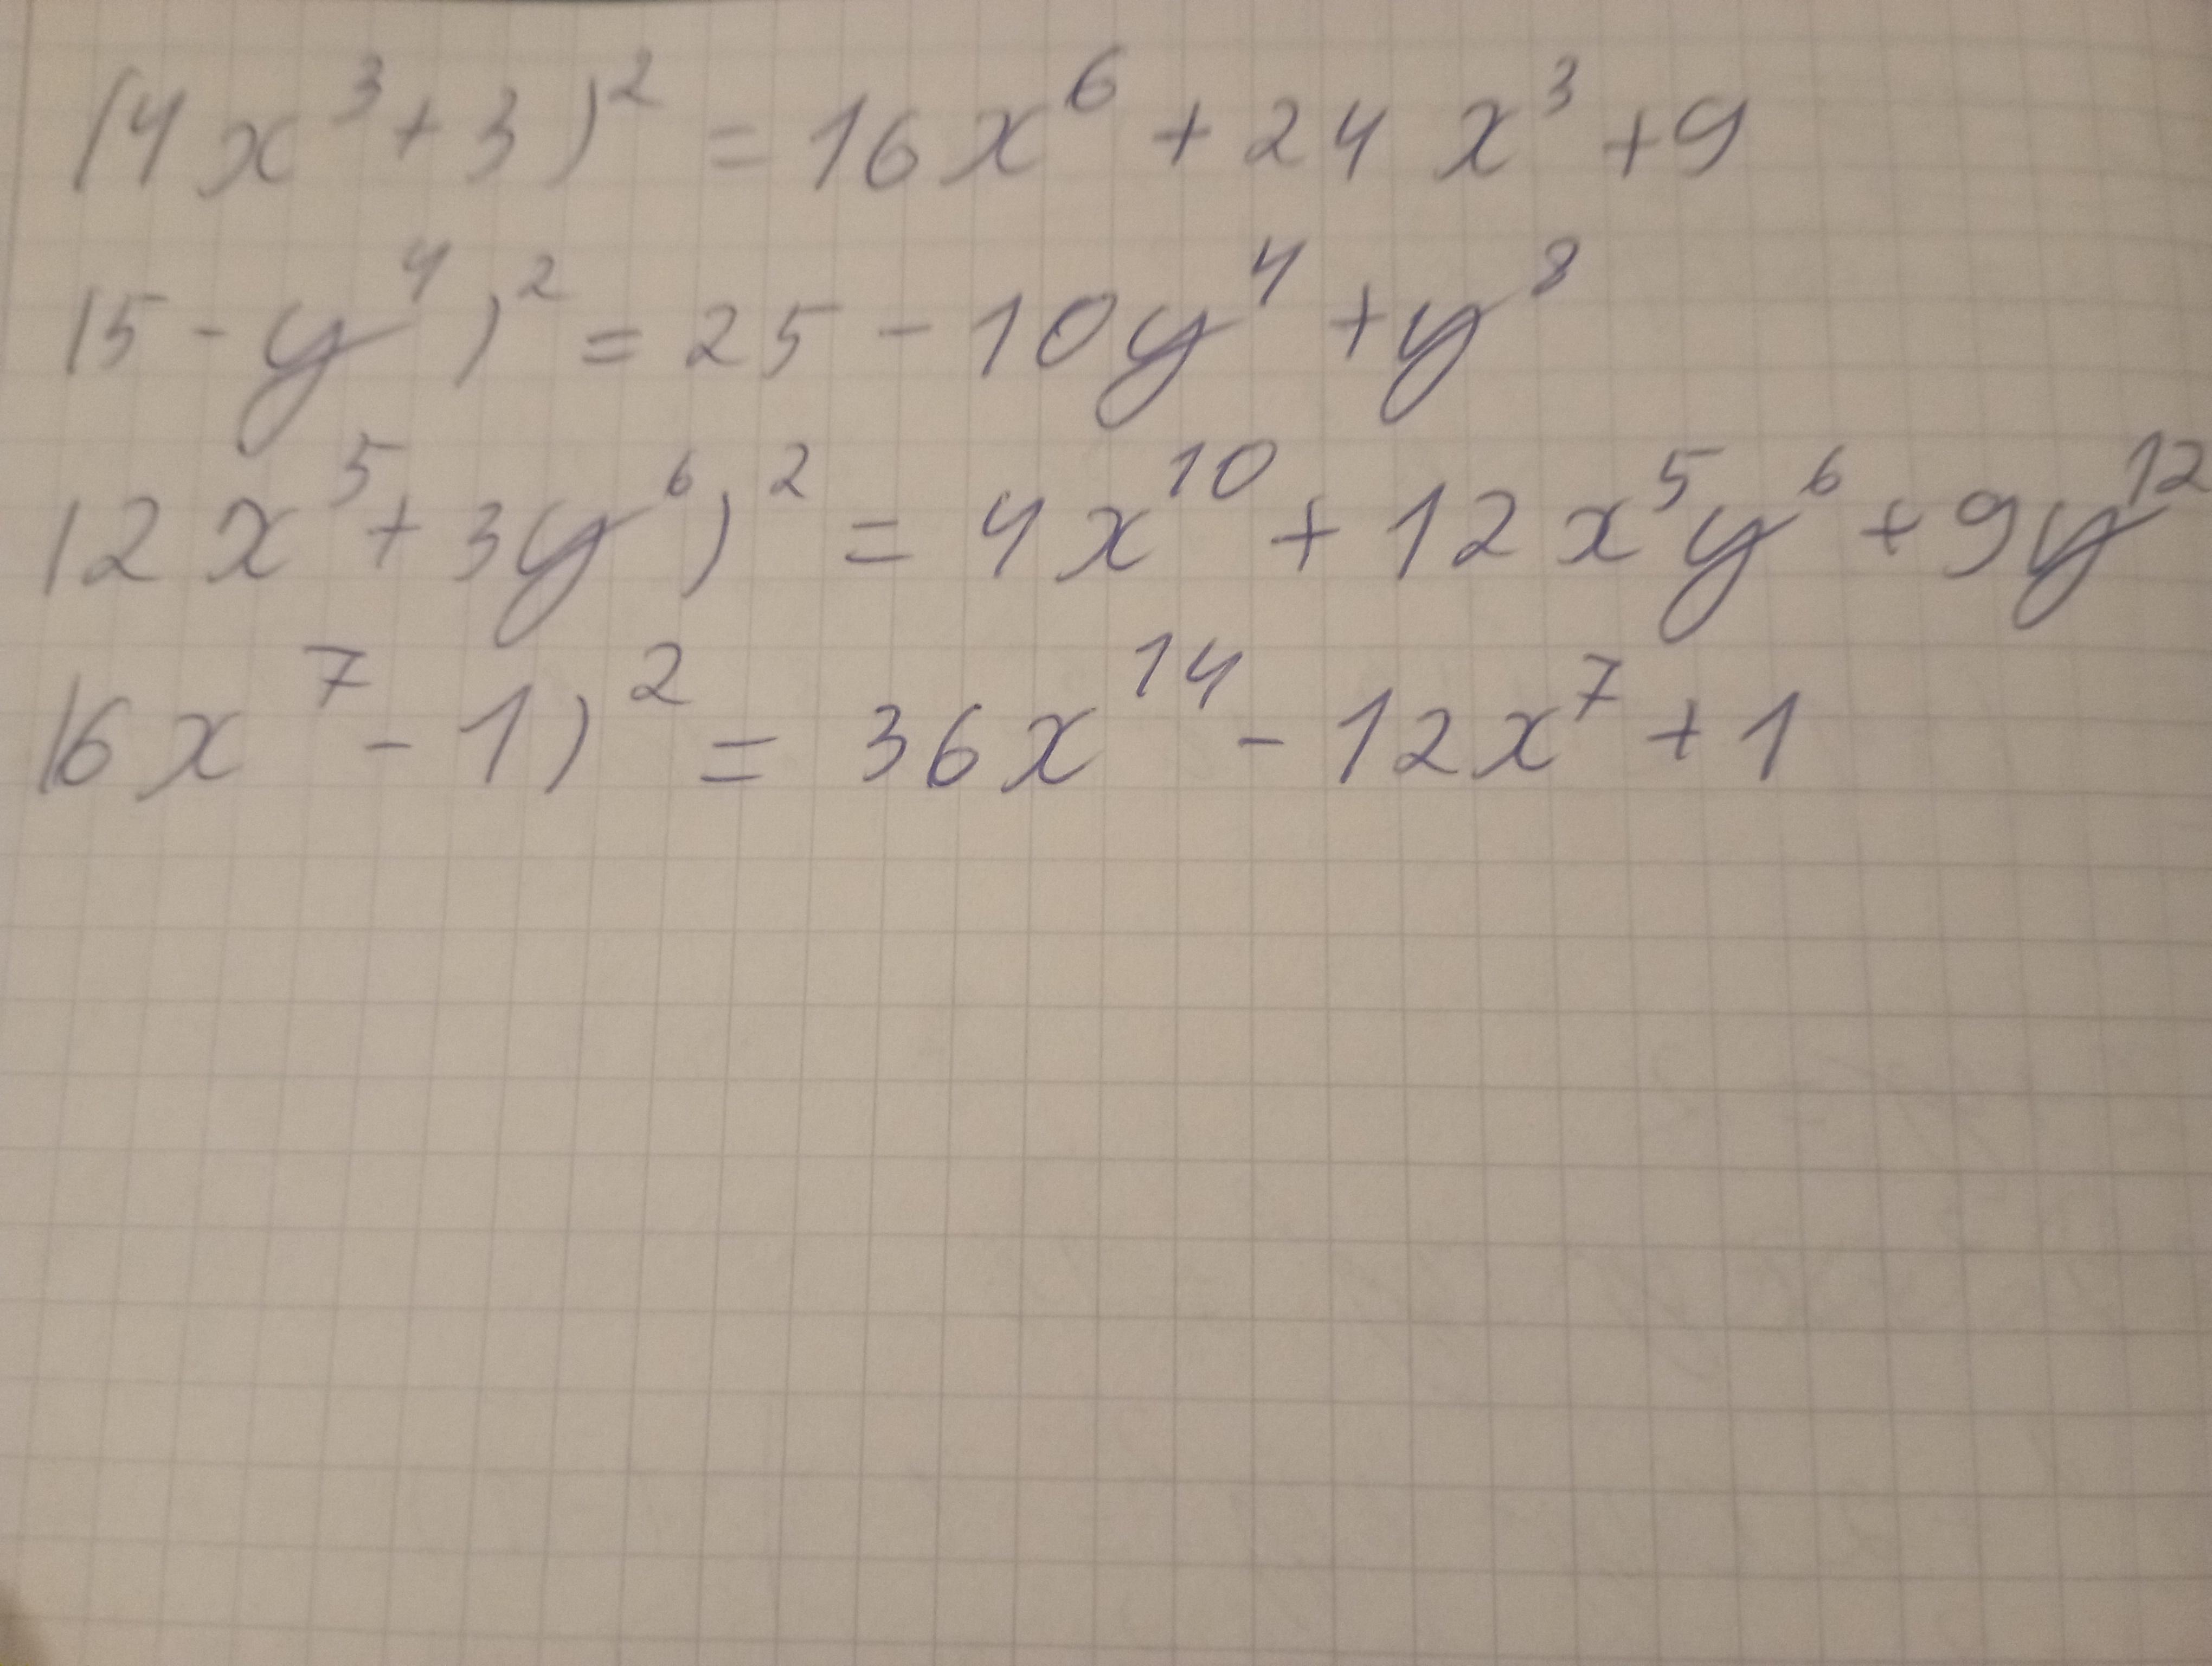 (4x³+3)² = 16x⁶ + 24x³ + 9
(5 - y⁴)² = 25 - 10y⁴ + y⁸
(2x⁵ + 3y⁶)² = 4x¹⁰ + 12x⁵y⁶ + 9y¹²
(6x⁷ - 1)² = 36x¹⁴ - 12x⁷ + 1